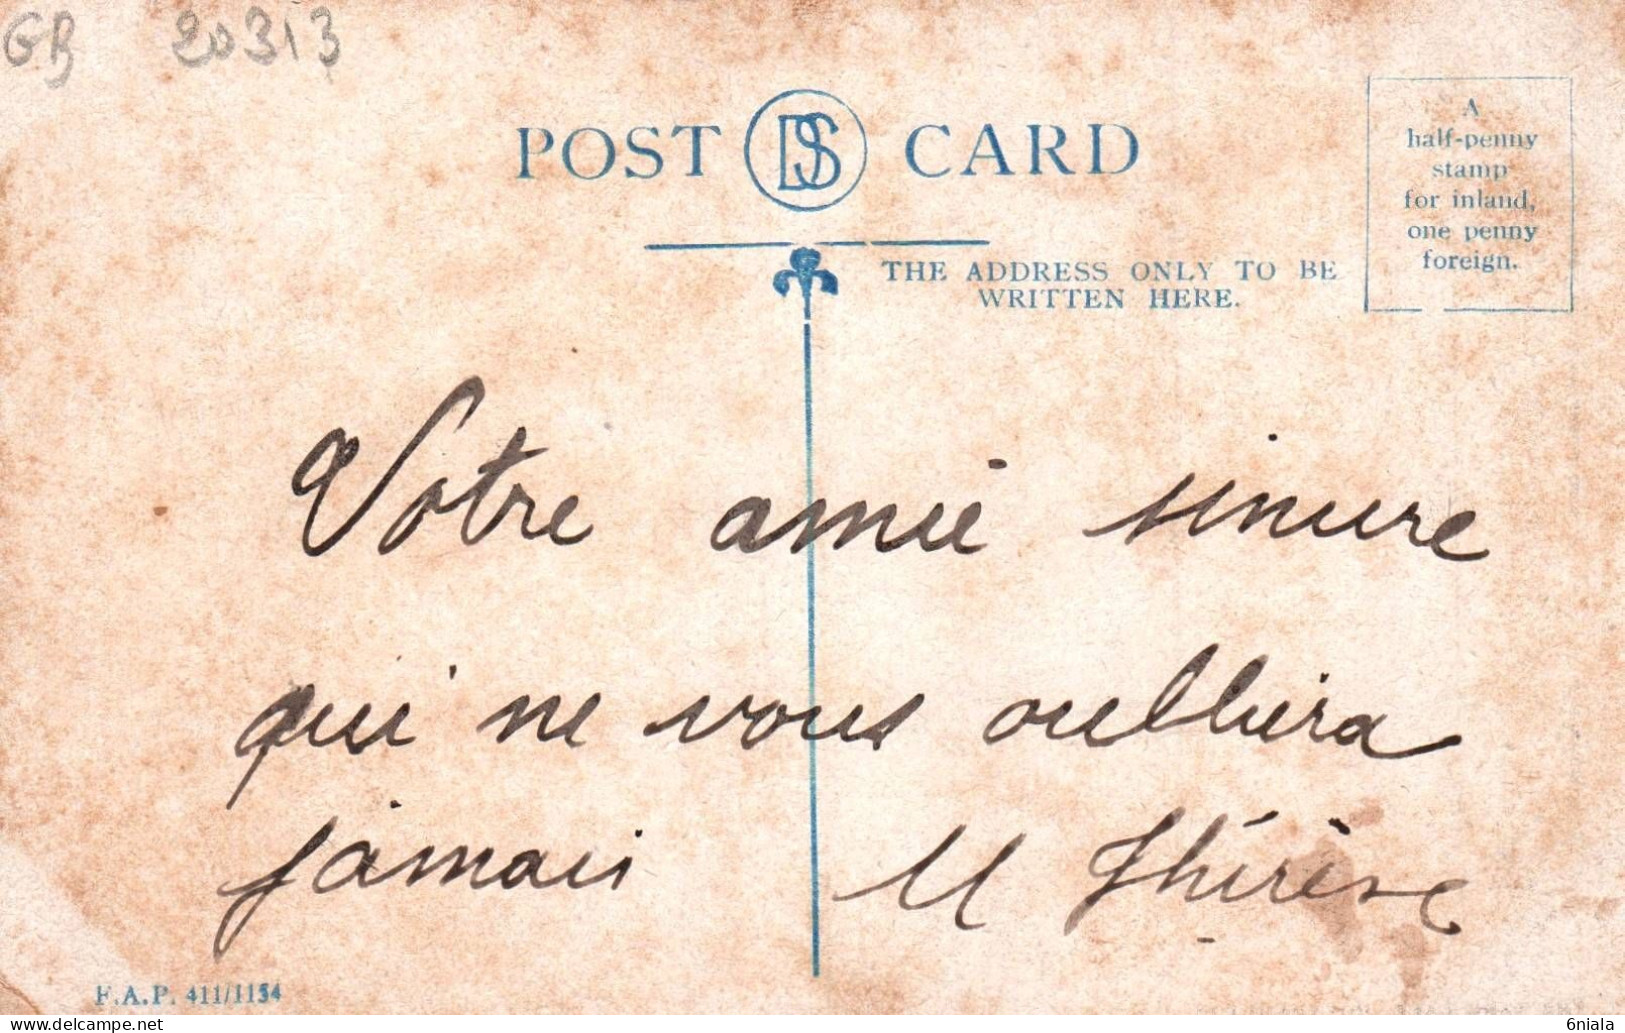 GB 20313
POST DS CARD
A
half-penny
stamp
for inland,
one penny
foreign.
THE ADDRESS ONLY TO BE
WRITTEN HERE.
Votre amie sincère
qui ne vous oubliera
jamais M Thérèse
F.A.P. 411/1154
delcampe.net
6niala